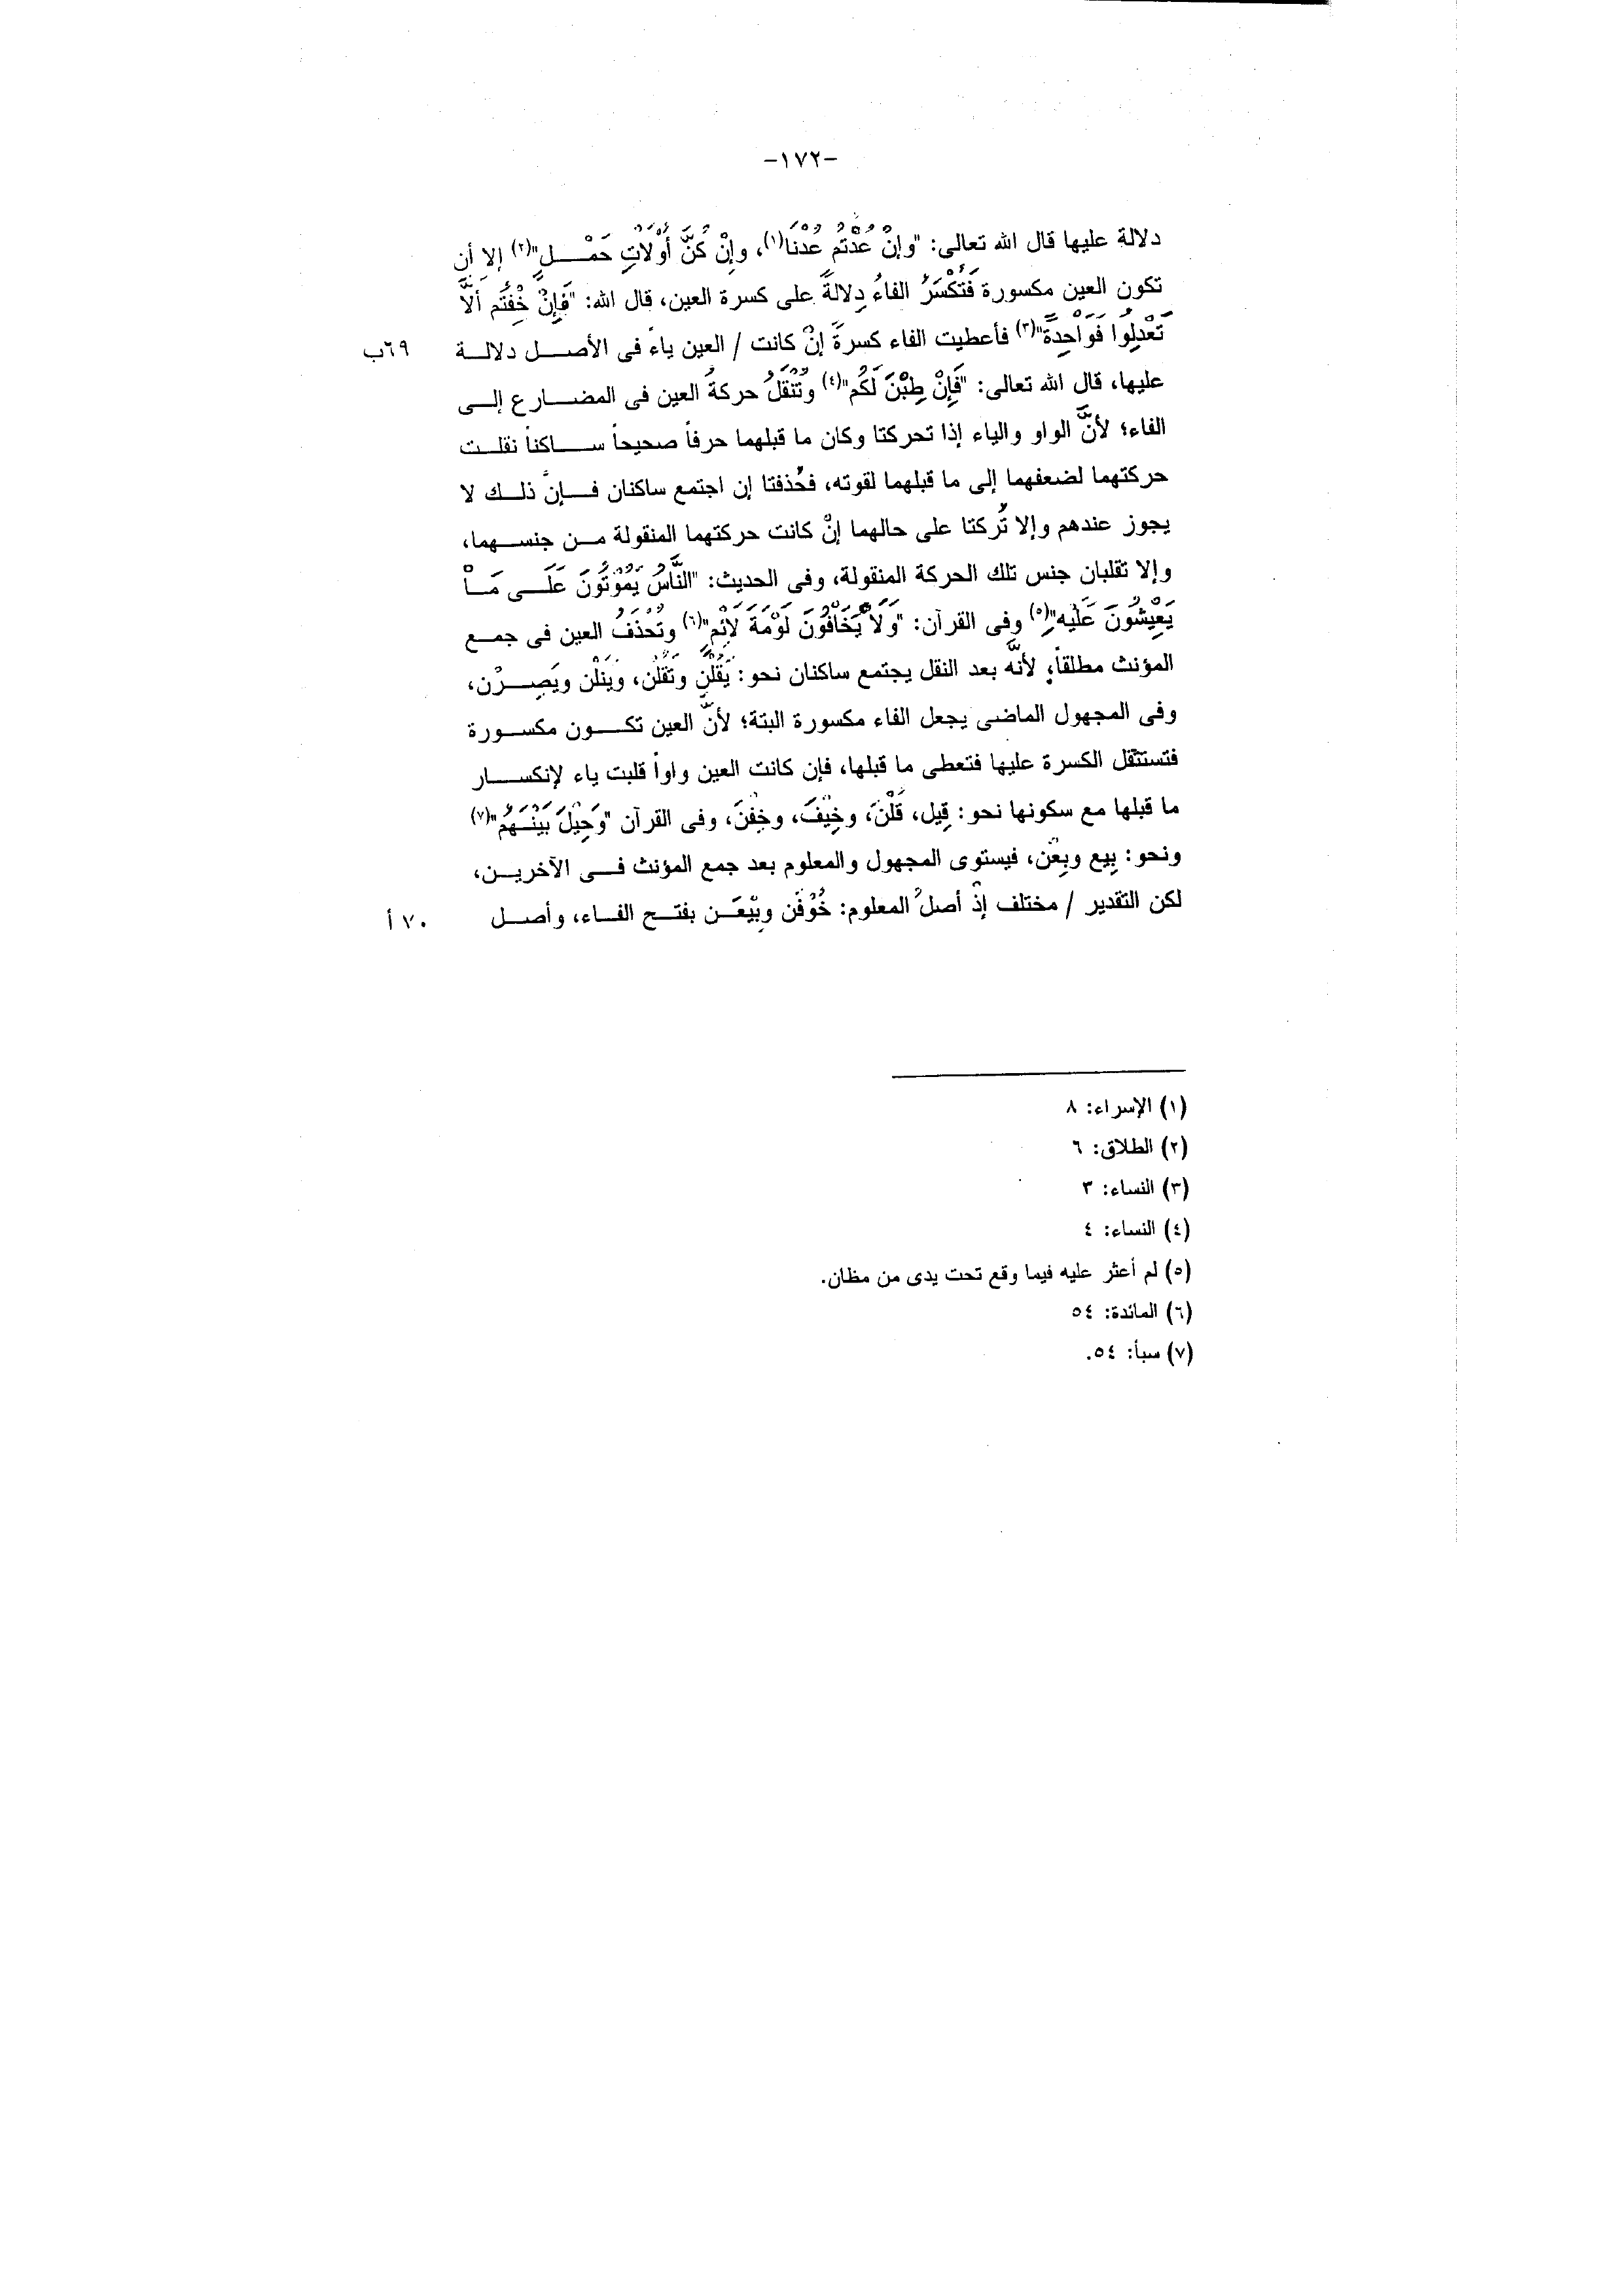 -١٧٢-
دلالة عليها قال الله تعالى: "وإنْ عُدْتُم عُدْنَا(١)، وإنْ كُنَّ أُوْلَاتِ حَمْلٍ"(٢) إلا أن
تكون العين مكسورة فَتُكْسَرُ الفاءُ دِلالةً على كسرة العين، قال الله: "فَإِنْ خِفْتُم ألَّا
تَعْدِلُوا فَوَاحِدِةً"(٣) فأعطيت الفاء كسرةً إنْ كانت / العين ياءً فى الأصل دلالة ٦٩ب
عليها، قال الله تعالى: "فَإِنْ طِبْنَ لَكُم"(٤) وتُنْقَلُ حركةُ العين فى المضارع إلى
الفاء؛ لأنَّ الواو والياء إذا تحركتا وكان ما قبلهما حرفاً صحيحاً ساكناً نقلت
حركتهما لضعفهما إلى ما قبلهما لقوته، فحُذفتا إن اجتمع ساكنان فإنَّ ذلك لا
يجوز عندهم وإلا تُركتا على حالهما إنْ كانت حركتهما المنقولة من جنسهما،
وإلا تقلبان جنس تلك الحركة المنقولة، وفى الحديث: "النَّاسُ يَمُوْتُونَ عَلَى مَاْ
يَعِيْشُونَ عَلَيْهِ"(٥) وفى القرآن: "وَلَاْ يَخَاْفُوْنَ لَوْمَةَ لَائِمٍ"(٦) وتُحْذَفُ العين فى جمع
المؤنث مطلقاً؛ لأنَّه بعد النقل يجتمع ساكنان نحو: يَقُلْنَ وتَقُلْن، ويَنَلْن ويَصِرْن،
وفى المجهول الماضى يجعل الفاء مكسورة البتة؛ لأنَّ العين تكون مكسورة
فتستثقل الكسرة عليها فتعطى ما قبلها، فإن كانت العين واواً قلبت ياء لإنكسار
ما قبلها مع سكونها نحو: قِيل، قُلْنَ، وخِيْفَ، وخِفْنَ، وفى القرآن "وَحِيْلَ بَيْنَهُمْ"(٧)
ونحو: بِيع وبِعْن، فيستوى المجهول والمعلوم بعد جمع المؤنث فى الآخرين،
لكن التقدير / مختلف إذْ أصلُ المعلوم: خُوْفَن وبَيْعَن بفتح الفاء، وأصل ٧٠ أ
(١) الإسراء: ٨
(٢) الطلاق: ٦
(٣) النساء: ٣
(٤) النساء: ٤
(٥) لم أعثر عليه فيما وقع تحت يدى من مظان.
(٦) المائدة: ٥٤
(٧) سبأ: ٥٤.